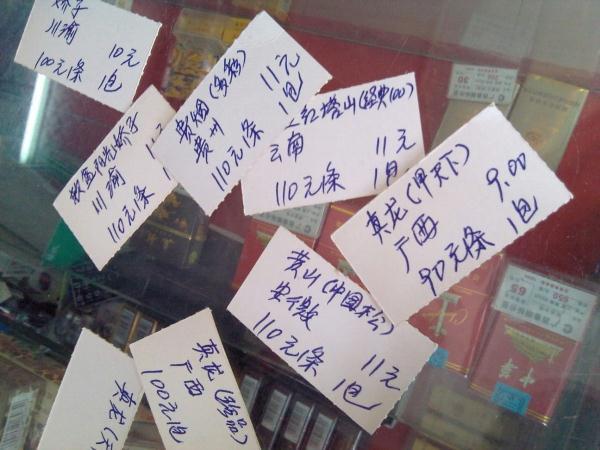 娇子
川渝 10元
100元条 1包
贵烟(多彩)
贵州 11元
110元条 1包
红塔山(经典100)
云南 11元
110元条 1包
娇子
川渝
110元条
真龙(甲天下)
广西 9.00
90元条 1包
黄山(中国松)
安徽 11元
110元条 1包
真龙(珍品)
广西
100元
真龙(
30
65
650
中华